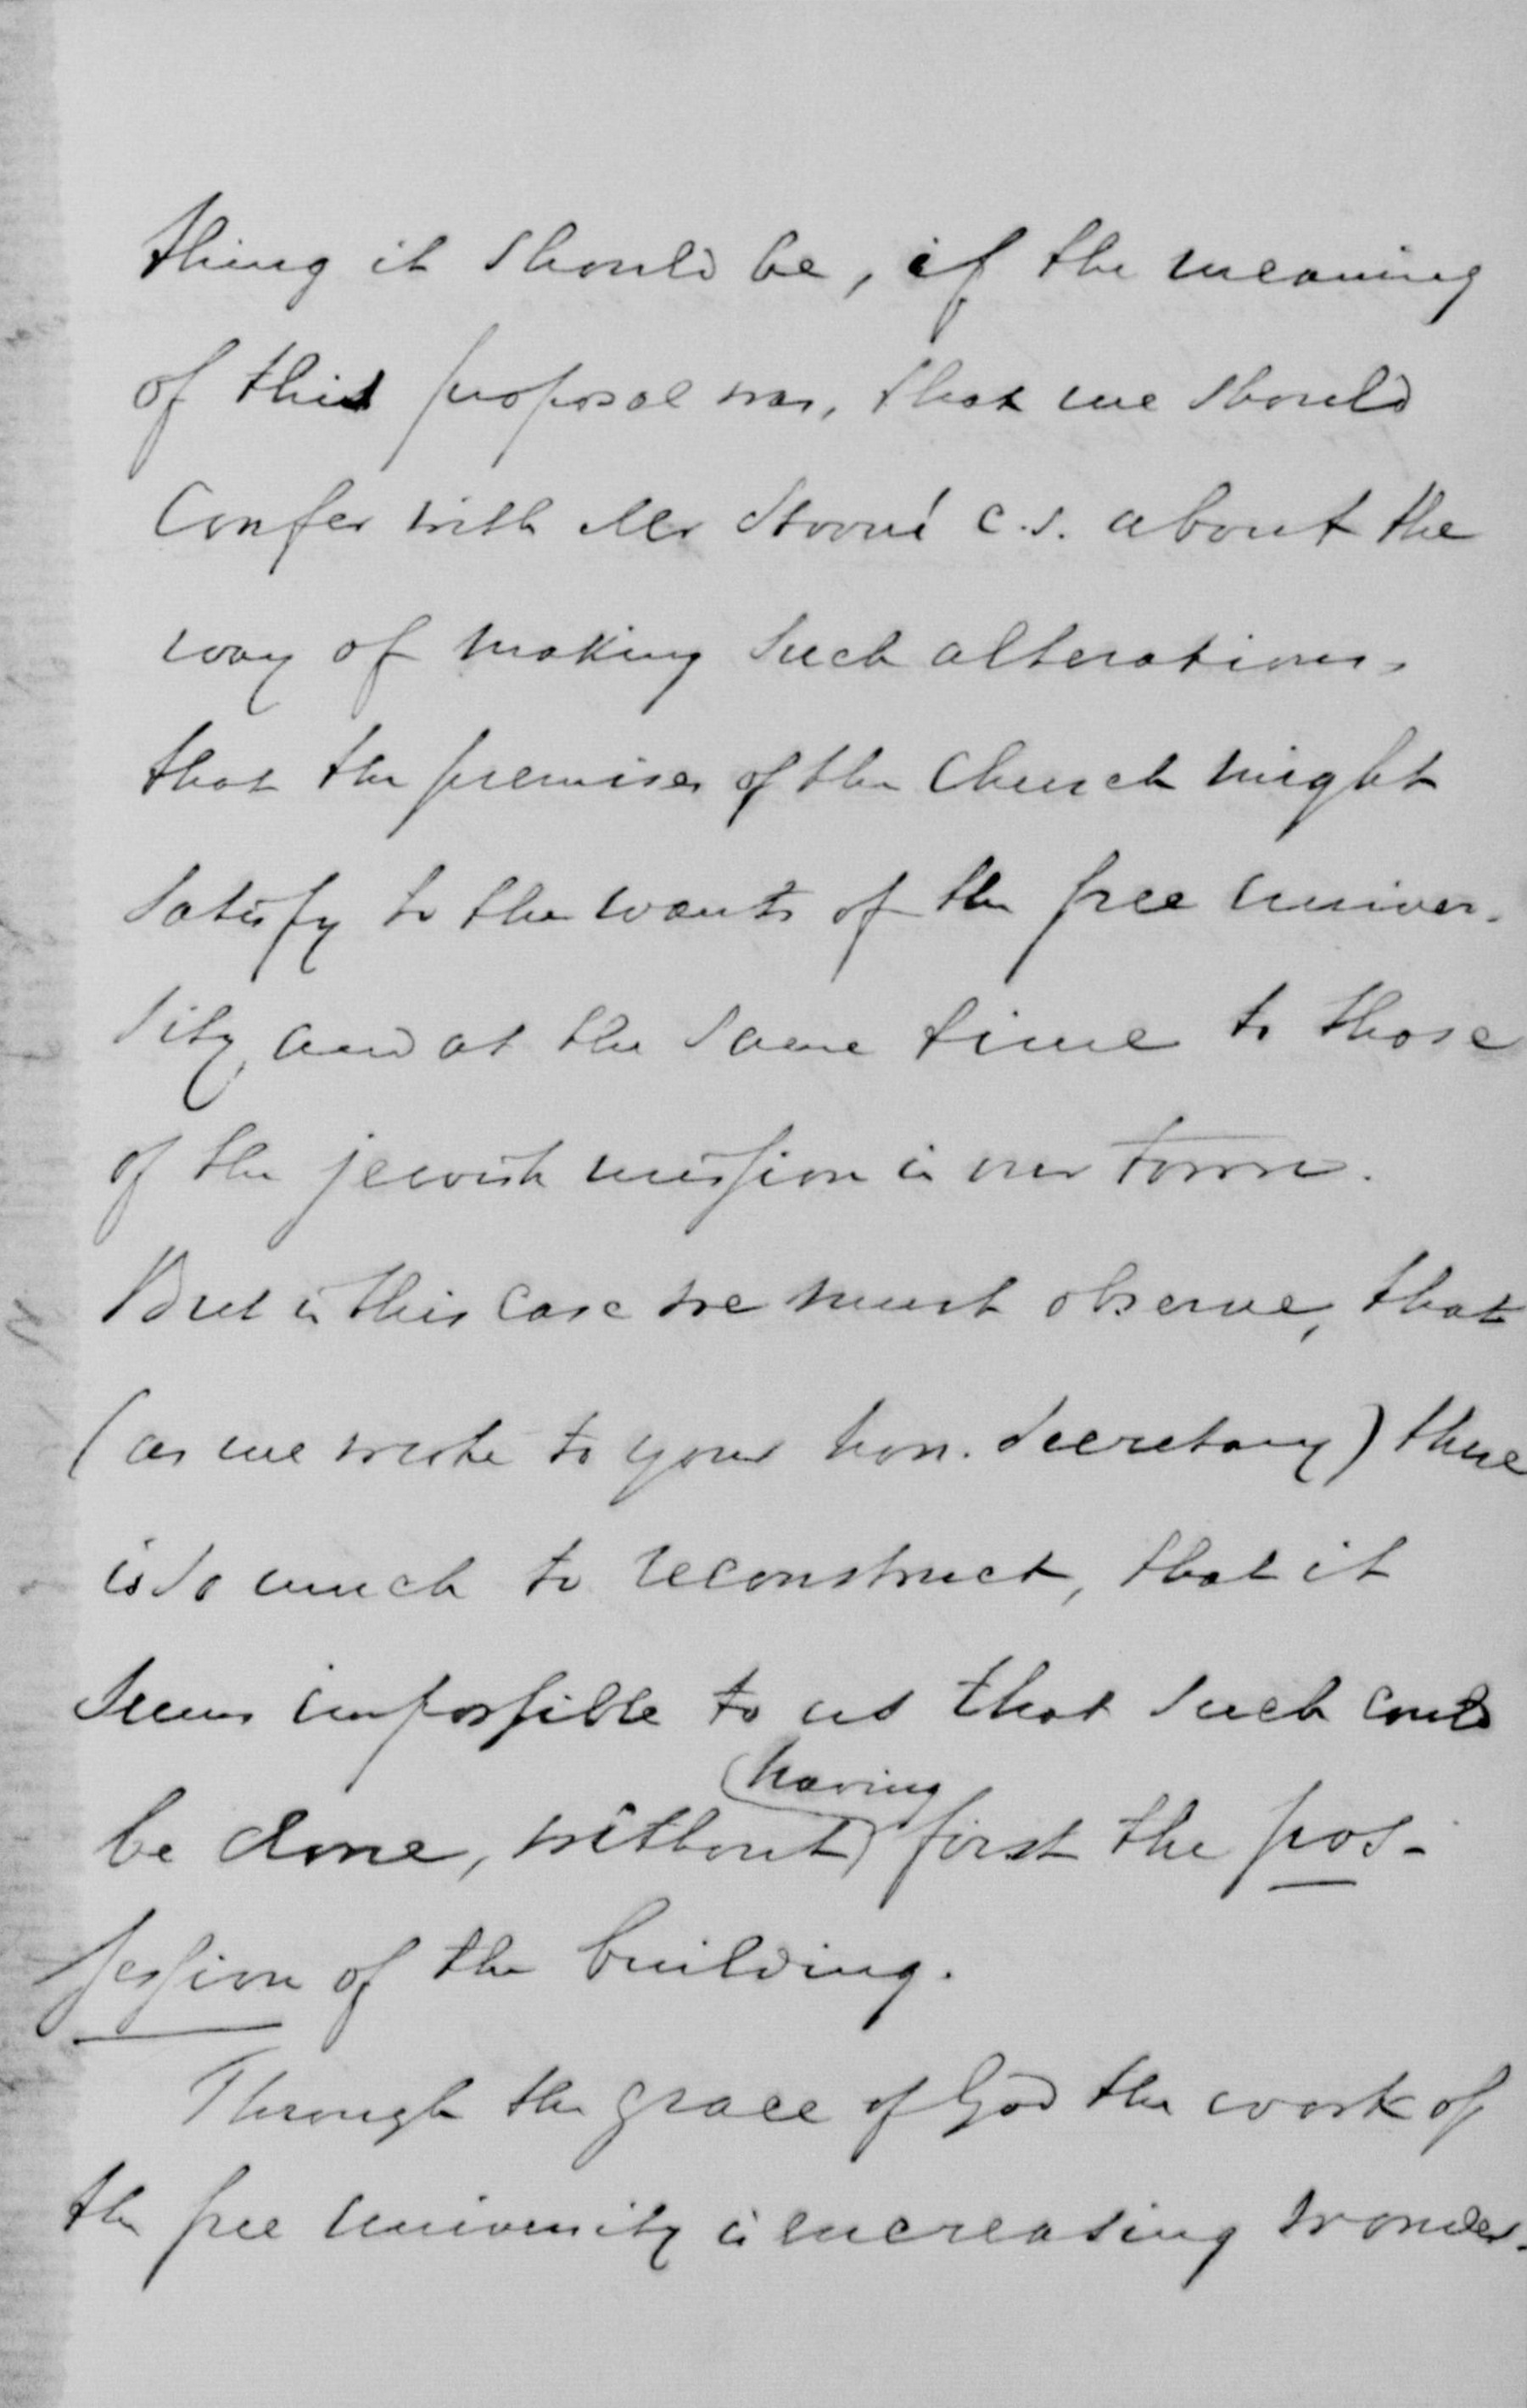 thing it should be, if the meaning
of this proposal was, that we should
Confer with Mr c.s. about the
way of making such alterations,
that the premises of the Church might
satisfy to the wants of the free univer-
sity, and at the same time to those
of the jewish mission in our town.
But in this case we must observe, that
(as we wrote to your hon. Secretary) there
is so much to reconstruct, that it
seems impossible to us that such could
be done, without having first the pos-
session of the building.
Through the grace of God the work of
the free university is encreasing wonder-